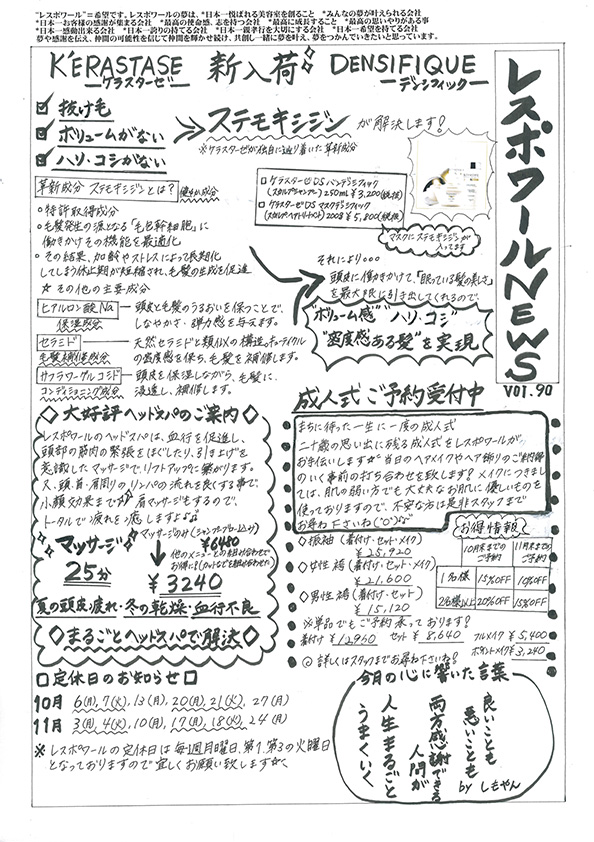 "レスポワール"=希望です。"レスポワールの夢は、*日本一悦ばれる美容室を創ること *みんなの夢が叶えられる会社
*日本一お客様の感謝が集まる会社 *最高の使命感、志を持つ会社 *最高に成長すること *最高の思いやりがある事
*日本一感動出来る会社 *日本一誇りの持てる会社 *日本一親孝行を大切にする会社 *日本一希望を持てる会社
夢や感謝を伝え、仲間の可能性を信じて仲間を輝かせ続け、共創し一緒に夢を叶え、夢をつかんでいきたいと思っています。
レスポワールNEWS
VOl.90
KÉRASTASE 新入荷 DENSIFIQUE
ケラスターゼ デンシフィック
抜け毛
ボリュームがない
ハリ・コシがない
ステモキシジンが解決します!
※ケラスターゼが独自に辿り着いた革新成分
革新成分 ステモキシジンとは?
○特許取得成分
○毛髪発生の源となる「毛包幹細胞」に
働きかけその機能を最適化
○その結果、加齢やストレスによって長期化
してしまう休止期が短縮され、毛髪の生成を促進
☆その他の主要成分
ヒアルロン酸Na
保湿成分
頭皮と毛髪のうるおいを保つことで、
しなやかさ・弾力感を与えます。
セラミド
毛髪補修成分
天然セラミドと類似の構造。キューティクル
の密度感を保ち、毛髪を補修します。
サフラワーグルコシド
コンディショニング成分
頭皮を保湿しながら、毛髪に
浸透し、補修します。
□ケラスターゼDS バンデンシフィック
(スカルプシャンプー) 250ml ¥3,200(税抜)
□ケラスターゼDS マスクデンシフィック
(スカルプヘアトリートメント) 200g ¥5,800(税抜)
マスクにステモキシジンが
入ってます
それにより・・・
頭皮に働きかけて、「眠っている髪の美しさ」
を最大限に引き出してくれるので、
"ボリューム感" "ハリ・コシ"
"密度感ある髪"を実現
◇大好評ヘッドスパのご案内◇
レスポワールのヘッドスパは、血行を促進し、
頭部の筋肉の緊張をほぐしたり、引き上げを
意識したマッサージで、リフトアップに繋がります。
又、頭・首・肩周りのリンパの流れを良くする事で、
小顔効果まで 肩マッサージもするので、
トータルで疲れを癒しますよ♪
マッサージ
25分
マッサージのみ(シャンプーブロー込み)
¥6480
他のメニューとの組み合わせで
お得に!(カットなどを組み合わせた)
¥3240
夏の頭皮疲れ・冬の乾燥・血行不良
◇まるごとヘッドスパで解決◇
成人式ご予約受付中
まちに待った一生に一度の成人式
二十歳の思い出に残る成人式をレスポワールが
お手伝いします 当日のヘアメイクやヘア飾りのご納得
のいく事前の打ち合わせを致します! メイクにつきまし
ては、肌の弱い方でも大丈夫なお肌に優しいものを
使っておりますので、不安な方は是非スタッフまで
お尋ね下さいね
○振袖(着付け・セット・メイク)
¥25,920
○女性袴(着付け・セット・メイク)
¥21,600
○男性袴(着付け・セット)
¥15,120
※単品でもご予約承っております!
着付け¥12960 セット¥8,640 フルメイク¥5,400
ポイントメイク¥3,240
◎詳しくはスタッフまでお尋ね下さいね!
お得情報
10月末までの
ご予約
11月末までの
ご予約
1名様 15%OFF 10%OFF
2名様以上 20%OFF 15%OFF
□定休日のお知らせ□
10月 6(月),7(火),13(月),20(月),21(火),27(月)
11月 3(月),4(火),10(月),17(月),18(火),24(月)
※レスポワールの定休日は毎週月曜日、第1、第3の火曜日
となっておりますので宜しくお願い致します
今月の心に響いた言葉
良いことも
悪いことも
両方感謝できる
人間が
人生まるごと
うまくいく
by しもやん